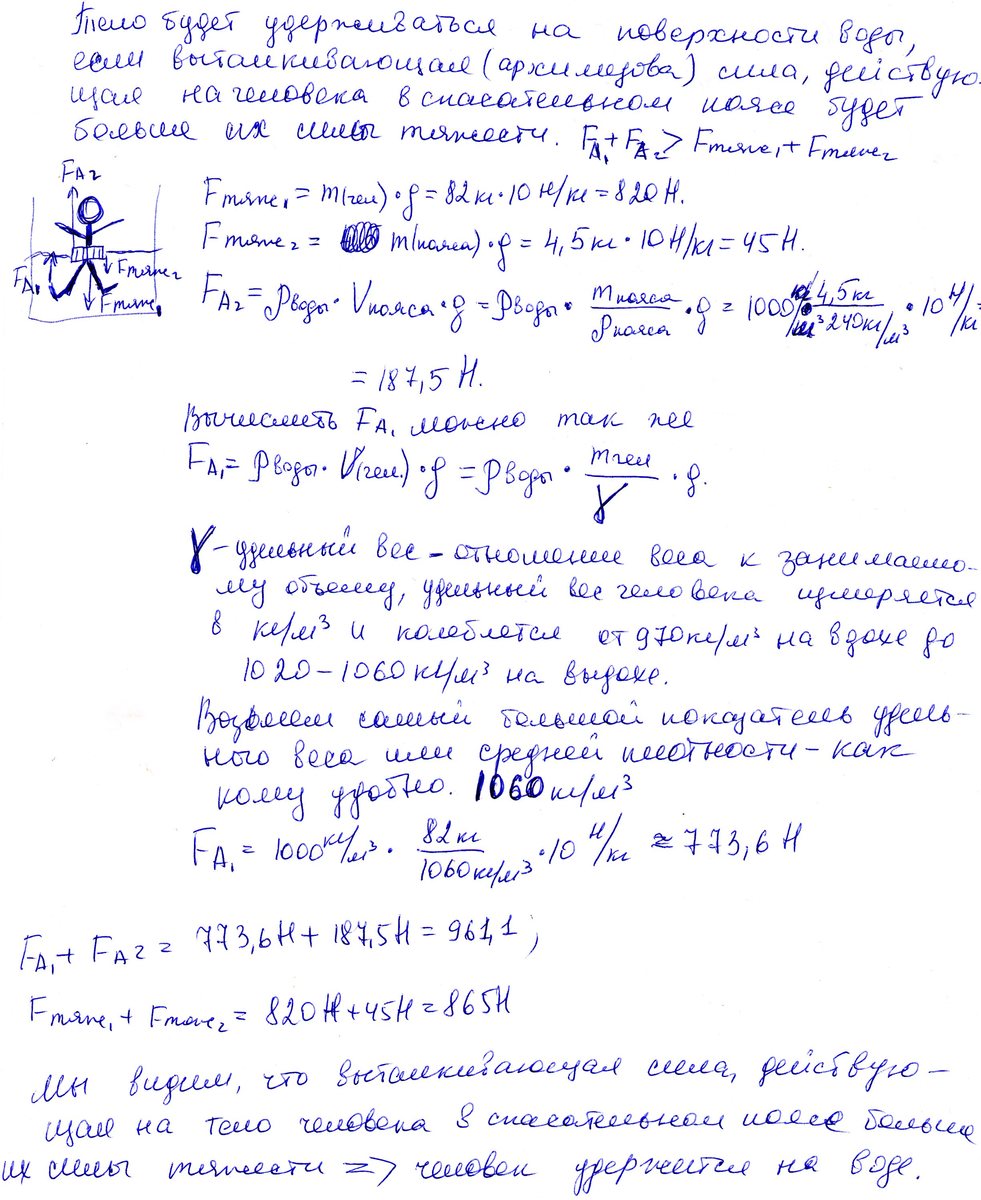 Тело будет удерживаться на поверхности воды,
если выталкивающая (архимедова) сила, действую-
щая на человека в спасательном поясе будет
больше их силы тяжести. F_A₁ + F_A₂ > Fтяж₁ + Fтяж₂
F_A₂
Fтяж₁ = m(чел) · g = 82 кг · 10 Н/кг = 820 Н.
Fтяж₂ = m(пояса) · g = 4,5 кг · 10 Н/кг = 45 Н.
F_A₁
Fтяж₂
Fтяж₁
F_A₂ = ρводы · Vпояса · g = ρводы · mпояса/ρпояса · g = 1000 кг/м³ · 4,5 кг/240 кг/м³ · 10 Н/кг =
= 187,5 Н.
Вычислить F_A₁ можно так же
F_A₁ = ρводы · V(чел.) · g = ρводы · mчел/γ · g.
γ - удельный вес – отношение веса к занимаемо-
му объему, удельный вес человека измеряется
в кг/м³ и колеблется от 970 кг/м³ на вдохе до
1020 – 1060 кг/м³ на выдохе.
Возьмем самый большой показатель удель-
ного веса или средней плотности – как
кому удобно. 1060 кг/м³
F_A₁ = 1000 кг/м³ · 82 кг/1060 кг/м³ · 10 Н/кг ≈ 773,6 Н
F_A₁ + F_A₂ = 773,6 Н + 187,5 Н = 961,1 ;
Fтяж₁ + Fтяж₂ = 820 Н + 45 Н = 865 Н
Мы видим, что выталкивающая сила, действую –
щая на тело человека в спасательном поясе больше
их силы тяжести => человек удержится на воде.